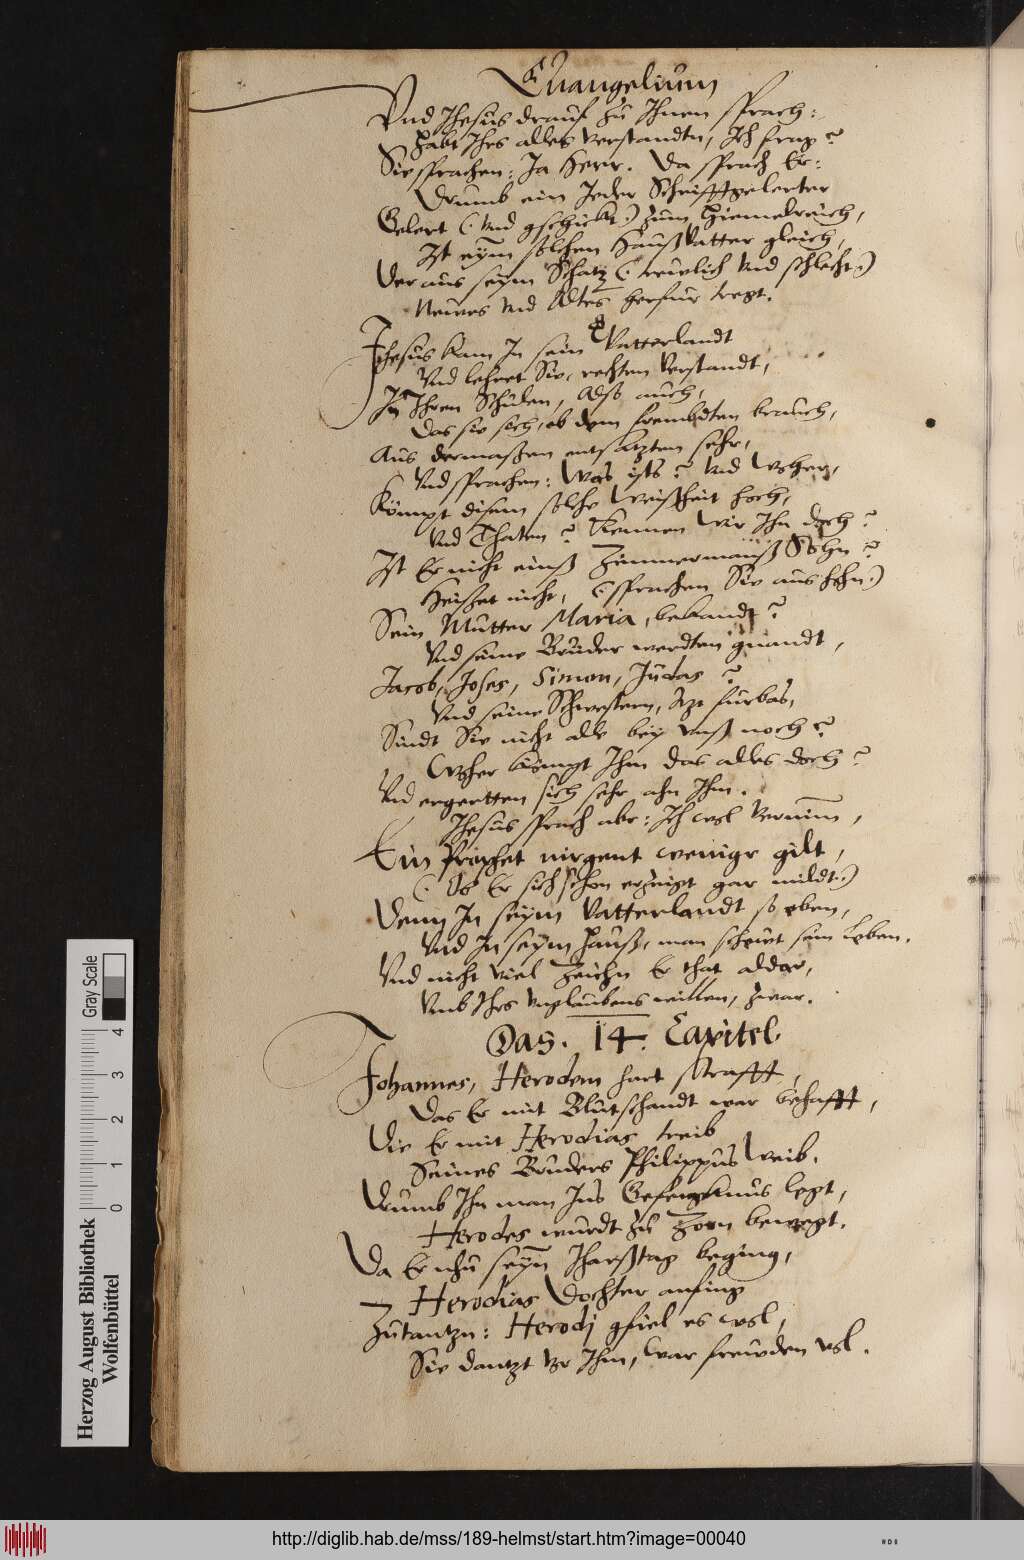 Euangelium
Vnd Jhesus drauf zu Ihnen sprach:
Habt Ihrs alles verstandtn, Ich frag?
Sie sprachen: Ja Herr. Da sprach Er:
Drumb ein Jeder Schrifftgelerter
Gelert (: vnd gschickt:) zum Himelreich,
Ist eym solchen Haußvatter gleich,
Der aus seym Schatz (: trewlich vnd schlecht:)
Newes vnd Altes herfur tregt.
Jhesus kam In sein Vatterlandt
Vnd lehret Sie, rechten verstandt,
In Ihren Schulen, Also auch,
Das sie sich, ob dem frembdten brauch,
Aus dermaßen entsatzten sehr,
Vnd sprachen: Was ists? vnd Woher,
Kömpt disem solche Weißheit hoch,
Vnd Thaten? Kennen Wir Ihn doch?
Ist Er nicht einß Zimmermanß Sohn?
Heißet nicht, (: sprachen Sie aus hohn:)
Sein Mutter Maria, bekandt?
Vnd seine Bruder werdten gnandt,
Jacob, Joses, Simon, Judas?
Vnd seine Schwestern, furbas,
Sindt Sie nicht alle bey vnß noch?
Woher kömpt Ihm das alles doch?
Vnd ergertten sich sehr ahn Ihm.
Jhesus sprach aber: Ich wol vernim,
Ein Prophet nirgent weniger gilt,
(: Ob Er sich schon erzeigt gar mildt:)
Denn In seym Vatterlandt so eben,
Vnd In seym Hauß, man schewt sein Leben.
Vnd nicht viel Zeichn Er that aldar,
Vmb Ihrs vnglaubens willen, zwar.
Das. 14. Capitel
Johannes, Herodem hart strafft,
Das Er mit Blutschandt war behafft,
Die Er mit Herodias treib
Seines Bruders Philippus Weib.
Drumb Ihn man Ins Gefengknus legt,
Herodes wurdt zu Zorn bewegt.
Da Er nhu seyn Jharßtag beging,
Herodias Dochter anfing
Zu tantzn: Herodi gfiel es wol,
Sie dantzt vor Ihm, war frewden vol.
Herzog August Bibliothek
Wolfenbüttel
Gray Scale
0 1 2 3 4
http://diglib.hab.de/mss/189-helmst/start.htm?image=00040